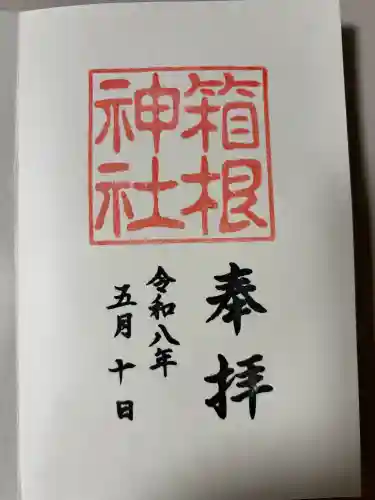 箱根
神社
奉拝
令和八年
五月十日